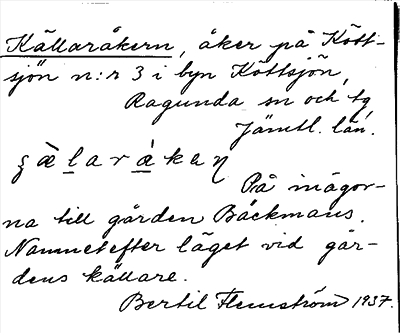 Källaråkern, åker på Kött-
sjön n:r 3 i byn Köttsjön,
Ragunda sn och tg
Jämtl. län.
ʂæ̀laråkaɳ
På inägor-
na till gården Bäckmans.
Namnet efter läget vid går-
dens källare.
Bertil Flemström 1937.